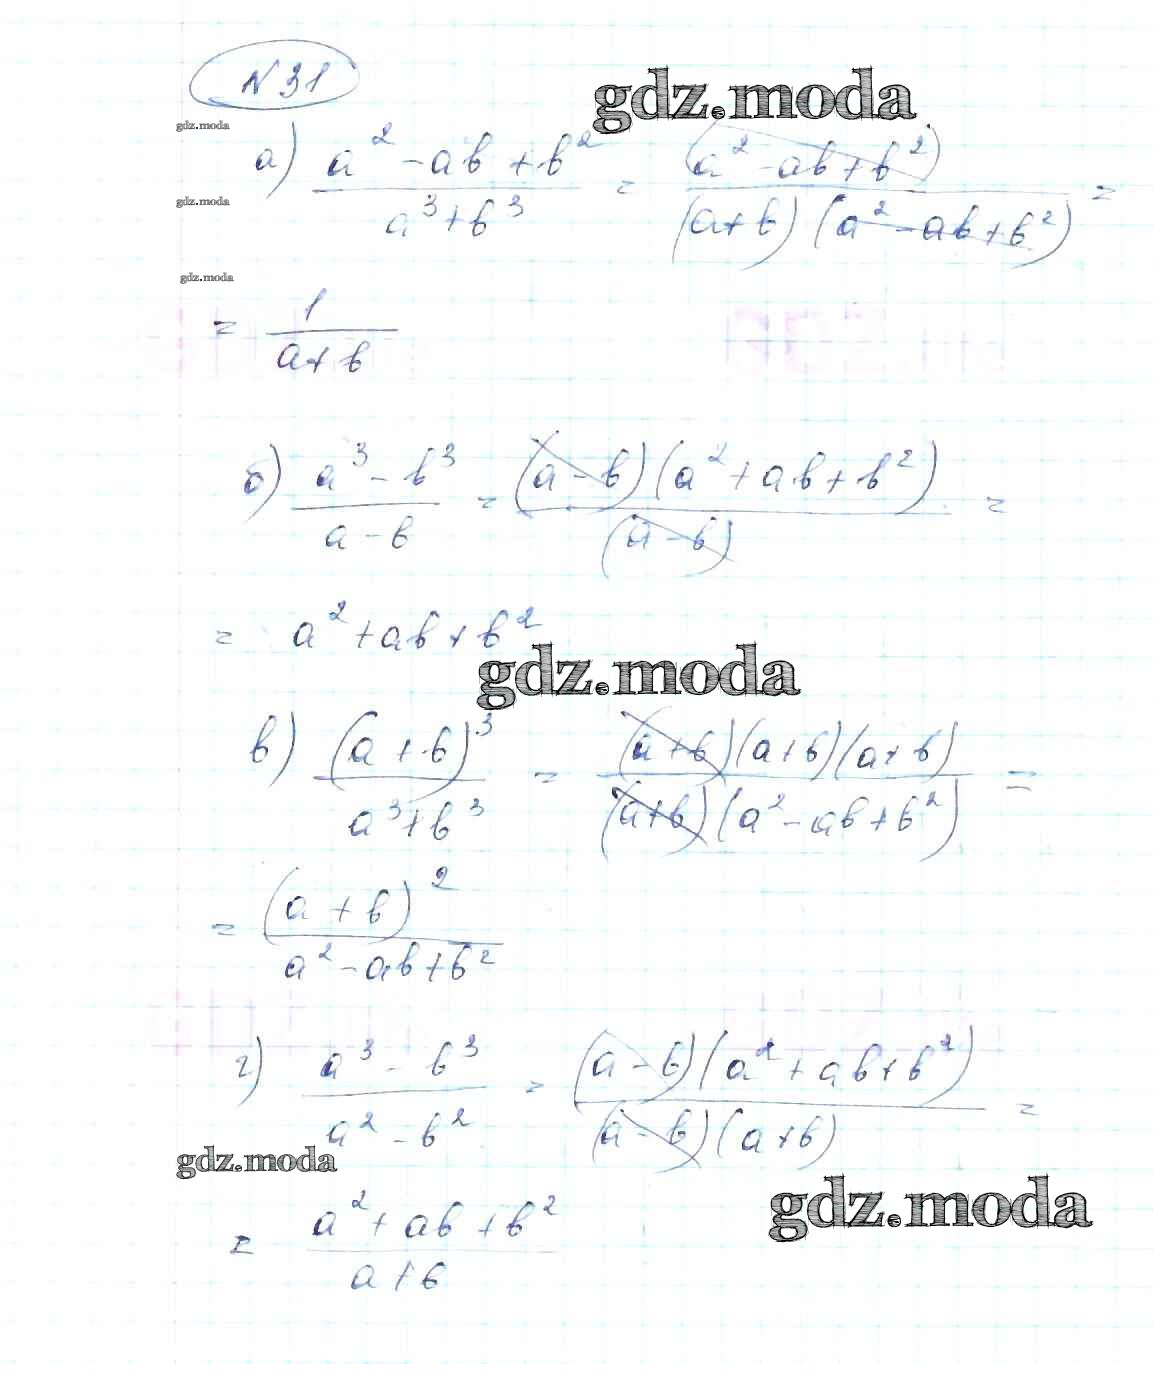 N 31
gdz.moda
gdz.moda
а) (a² - ab + b²)/(a³ + b³) = (a² - ab + b²)/((a + b)(a² - ab + b²)) =
gdz.moda
gdz.moda
= 1/(a + b)
б) (a³ - b³)/(a - b) = ((a - b)(a² + ab + b²))/(a - b) =
= a² + ab + b²
gdz.moda
в) (a + b)³/(a³ + b³) = ((a + b)(a + b)(a + b))/((a + b)(a² - ab + b²)) =
= (a + b)²/(a² - ab + b²)
г) (a³ - b³)/(a² - b²) = ((a - b)(a² + ab + b²))/((a - b)(a + b)) =
gdz.moda
gdz.moda
= (a² + ab + b²)/(a + b)